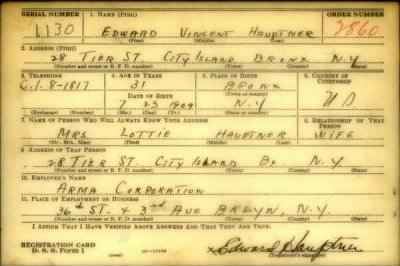 SERIAL NUMBER 1. NAME (Print) ORDER NUMBER
1130 EDWARD VINCENT HAUPTNER 2860
(First) (Middle) (Last)
2. ADDRESS (Print)
28 TIER ST. CITY ISLAND BRONX N.Y
(Number and street or R. F. D. number) (Town) (County) (State)
3. TELEPHONE 4. AGE IN YEARS 5. PLACE OF BIRTH 6. COUNTRY OF CITIZENSHIP
C.I. 8-1817 31 BRONX
DATE OF BIRTH (Town or county)
7 23 1909 N.Y U S
(Exchange) (Number) (Mo.) (Day) (Yr.) (State or country)
7. NAME OF PERSON WHO WILL ALWAYS KNOW YOUR ADDRESS 8. RELATIONSHIP OF THAT PERSON
MRS. LOTTIE HAUPTNER WIFE
(Mr., Mrs., Miss) (First) (Middle) (Last)
9. ADDRESS OF THAT PERSON
28 TIER ST. CITY ISLAND BX. N.Y.
(Number and street or R. F. D. number) (Town) (County) (State)
10. EMPLOYER'S NAME
ARMA CORPORATION
11. PLACE OF EMPLOYMENT OR BUSINESS
36th ST. & 3rd AVE BKLYN. N.Y.
(Number and street or R. F. D. number) (Town) (County) (State)
I AFFIRM THAT I HAVE VERIFIED ABOVE ANSWERS AND THAT THEY ARE TRUE.
REGISTRATION CARD
D. S. S. Form 1 Edward Hauptner
(Registrant's signature)